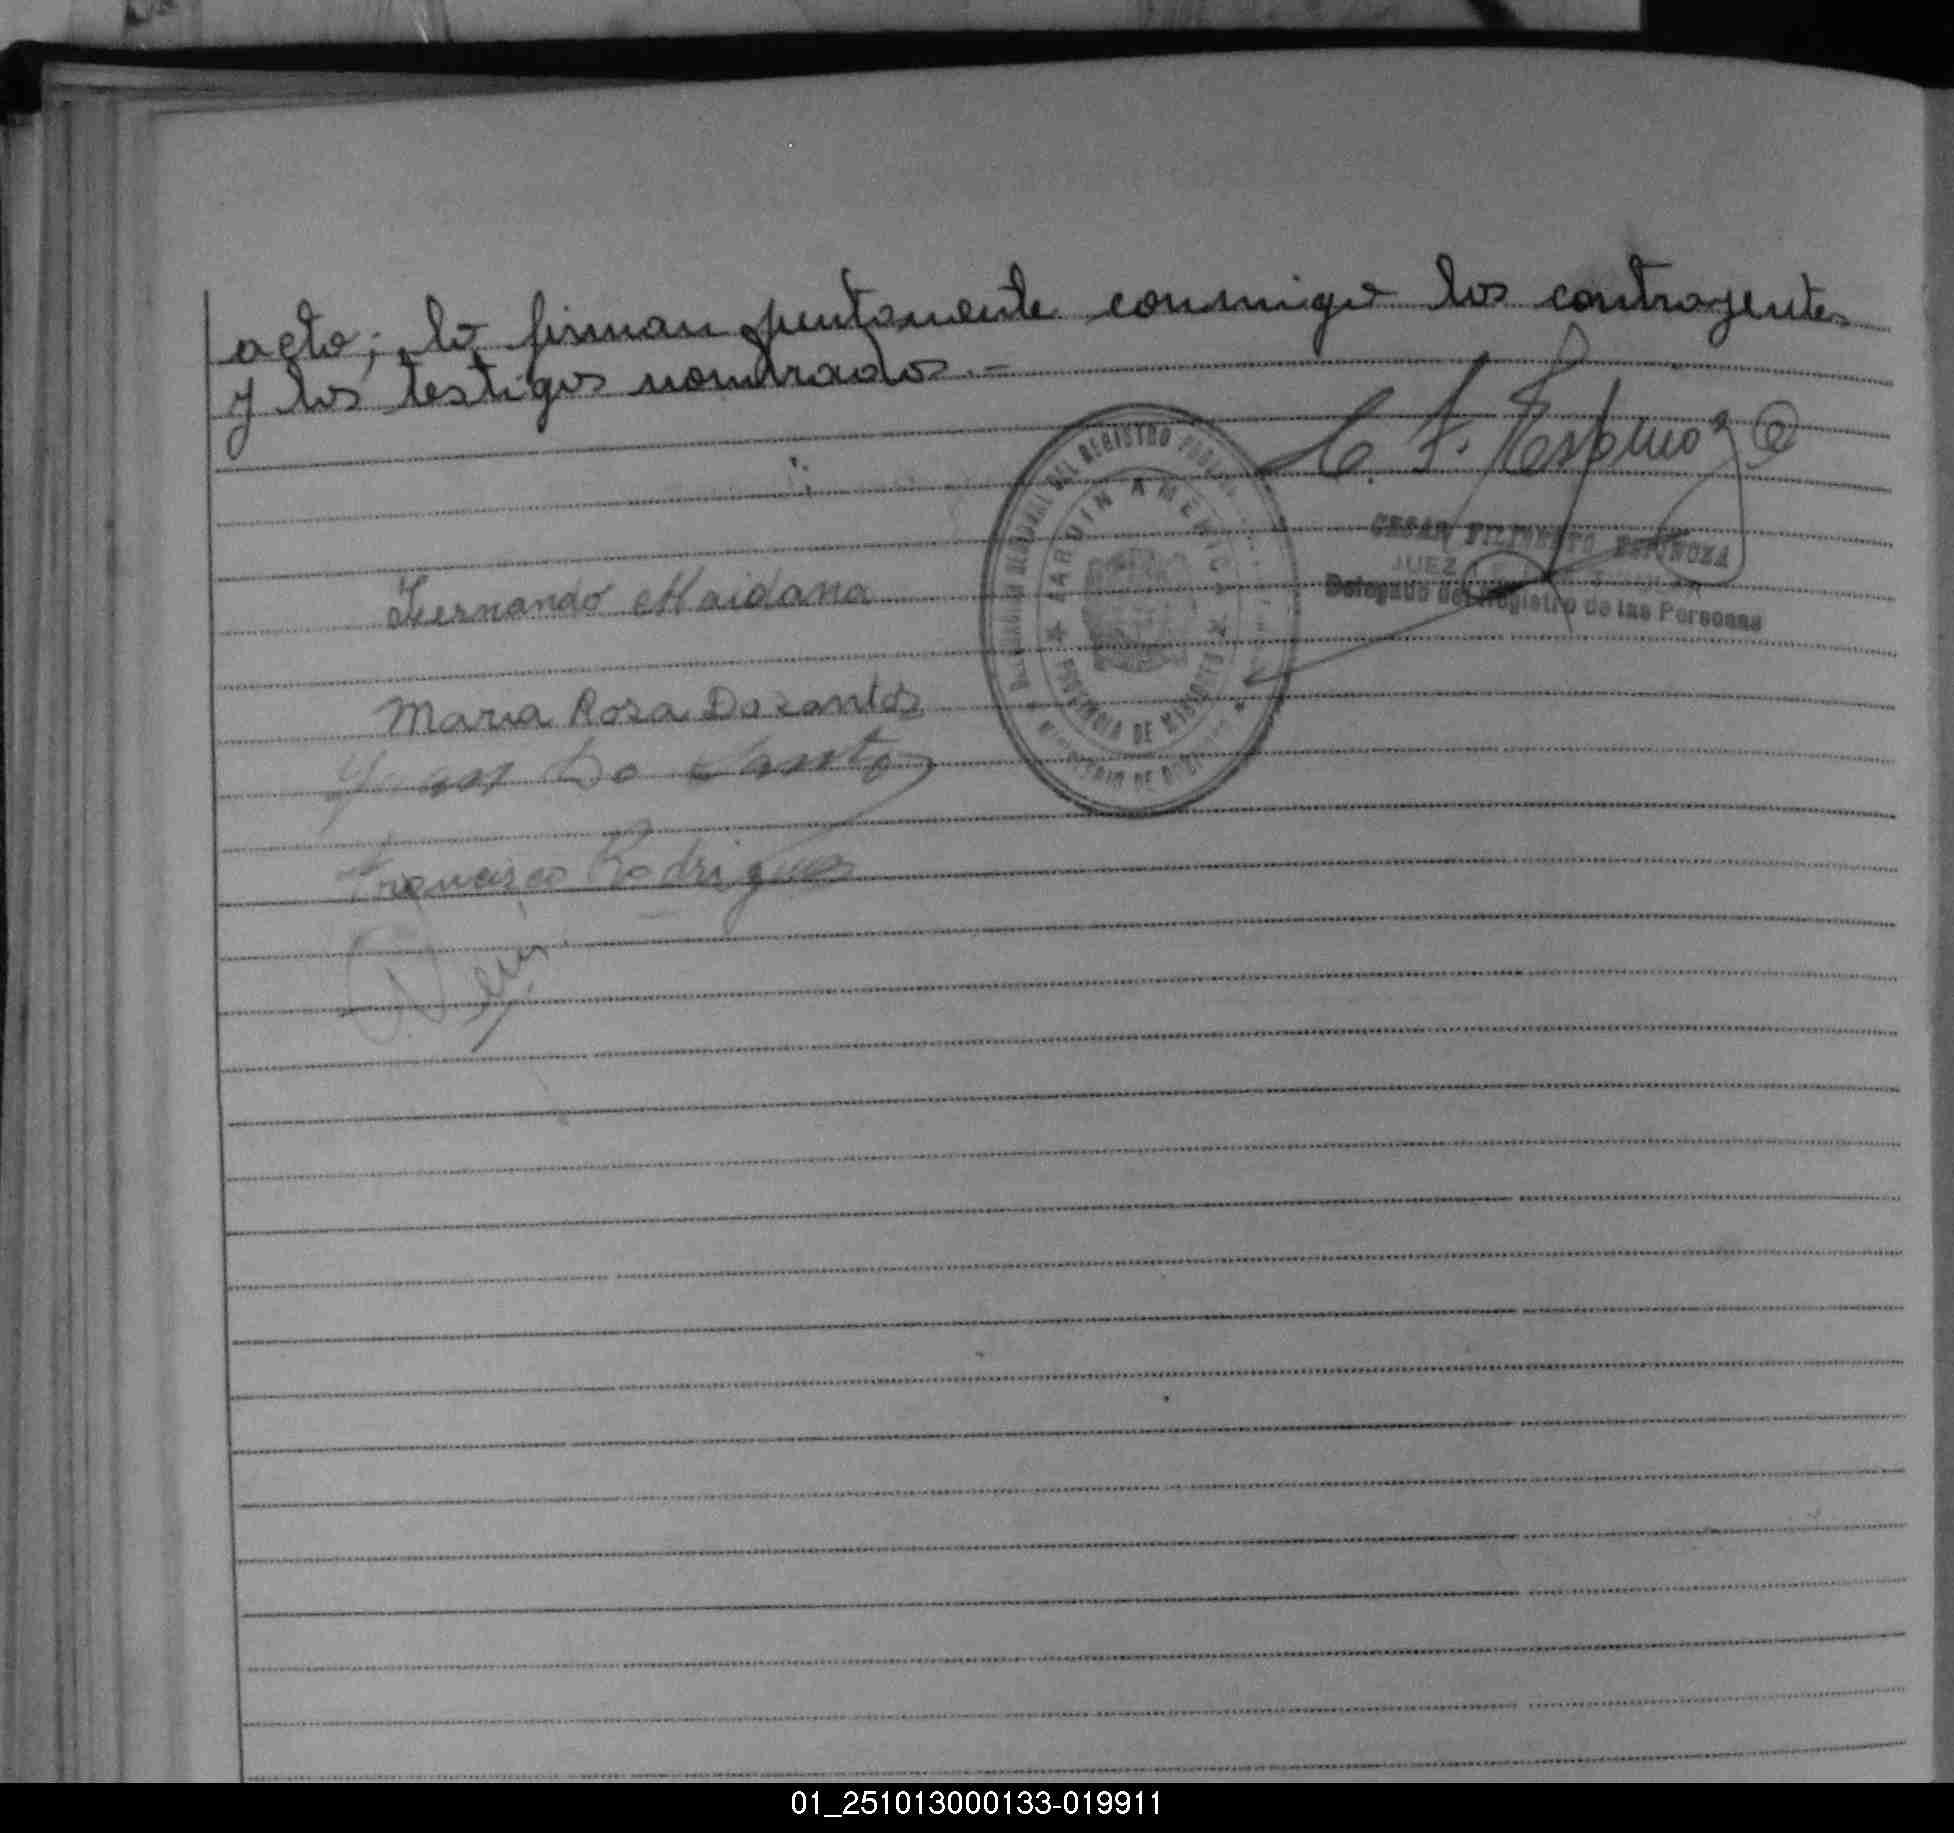 acto; lo firman juntamente conmigo los contrayentes
y los testigos nombrados.-
C. F. Espinoza
CESAR FILIBERTO ESPINOZA
JUEZ
Delegado del Registro de las Personas
DEL REGISTRO
JARDIN AMERICA
PROVINCIA DE MISIONES
MINISTERIO DE
Fernando Maidana
Maria Rosa Dosantos
Do Santos
Francisco Rodriguez
01_251013000133-019911